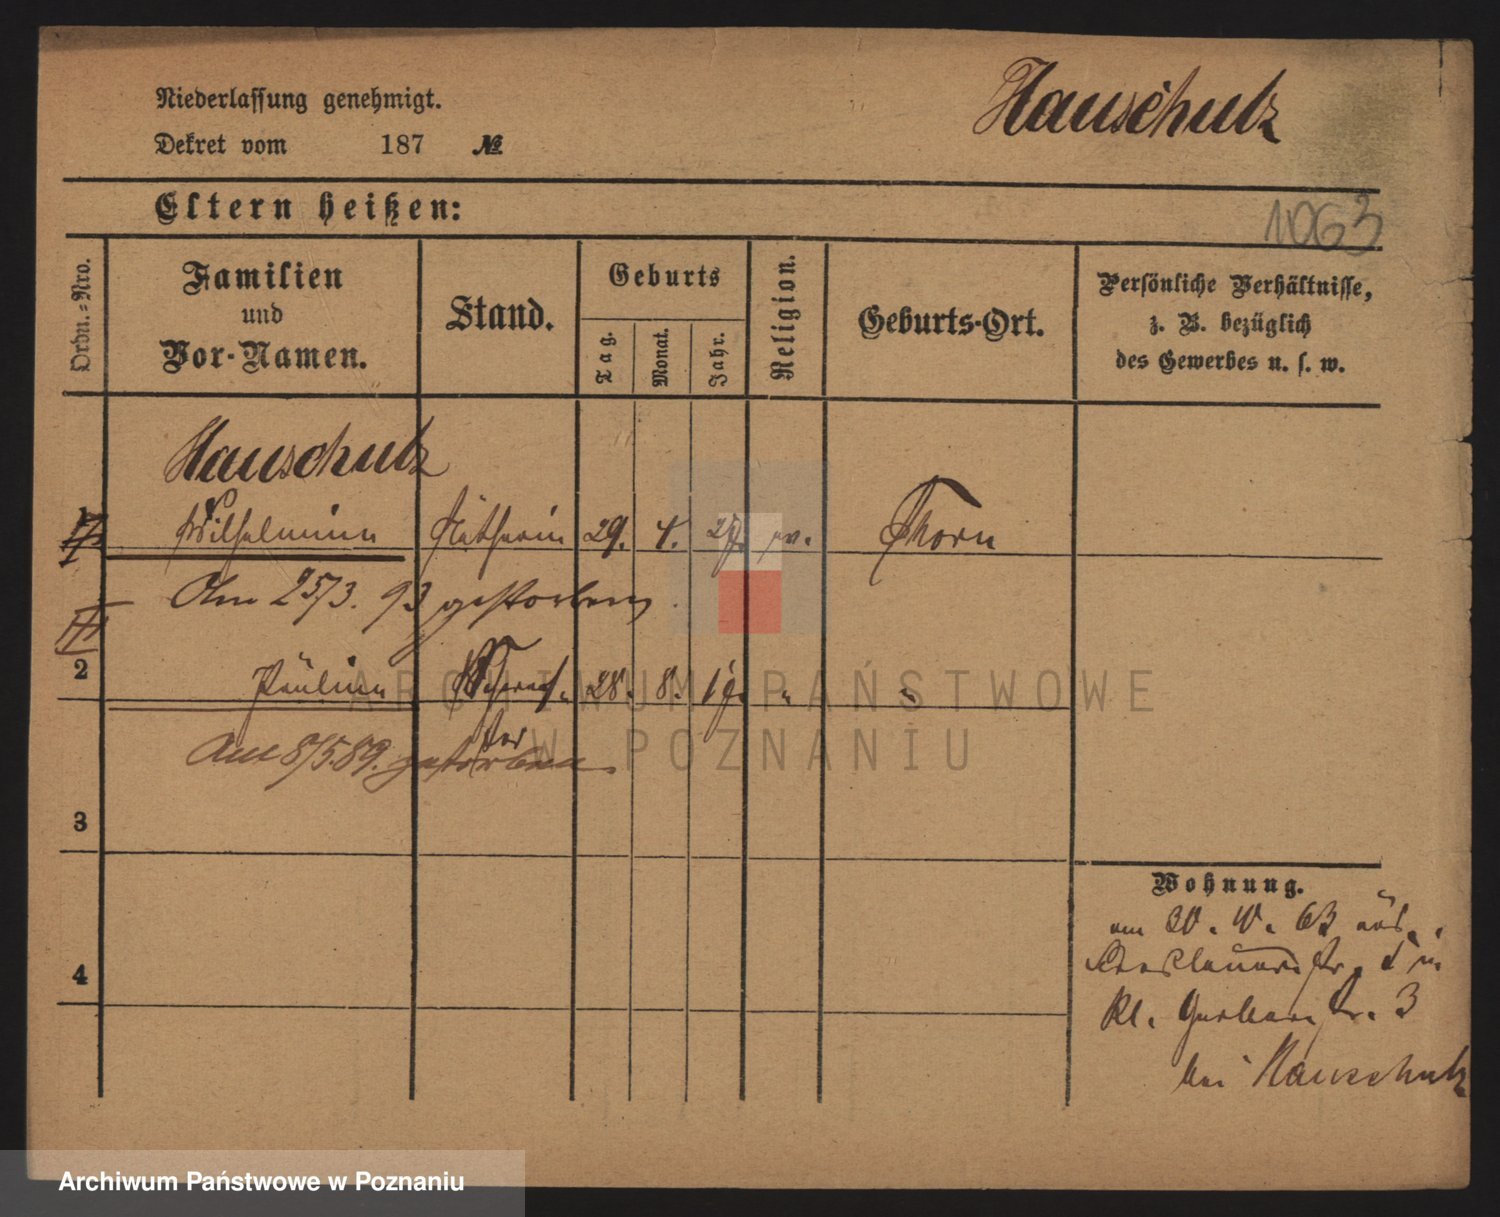 Niederlassung genehmigt.
Hauschutz
Dekret vom 187 №
Eltern heißen:
1063
Ordn.-Nro.
Familien
und
Vor-Namen.
Stand.
Geburts
Tag.
Monat.
Jahr.
Religion.
Geburts-Ort.
Persönliche Verhältnisse,
z. B. bezüglich
des Gewerbes u. s. w.
Hauschutz
1 Wilhelmine 29. 4. ev. Thorn
Am 25/3. 93 gestorben
2 Pauline 28. 8. 19. " "
Am 8/5.89. gestorben
3
4
Wohnung.
am 30. 63 aus
3
bei Hauschutz
ARCHIWUM PAŃSTWOWE
W POZNANIU
Archiwum Państwowe w Poznaniu